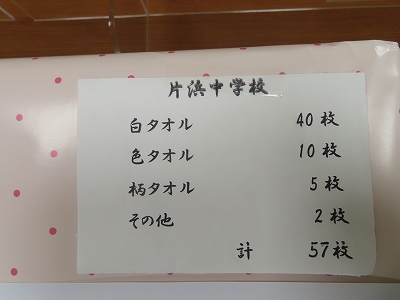 片浜中学校
白タオル 40枚
色タオル 10枚
柄タオル 5枚
その他 2枚
計 57枚